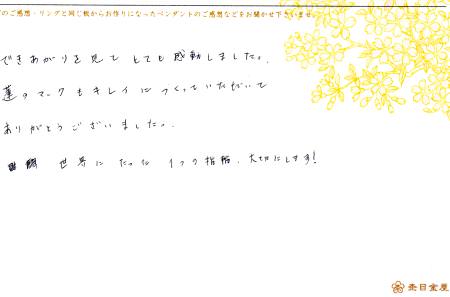 のご感想・リングと同じ板からお作りになったペンダントのご感想などをお聞かせ下さいませ。
できあがりを見て とても感動しました。
蓮のマークもキレイにつくっていただいて
ありがとうございました。
世界にたった1つの指輪、大切にします!
杢目金屋